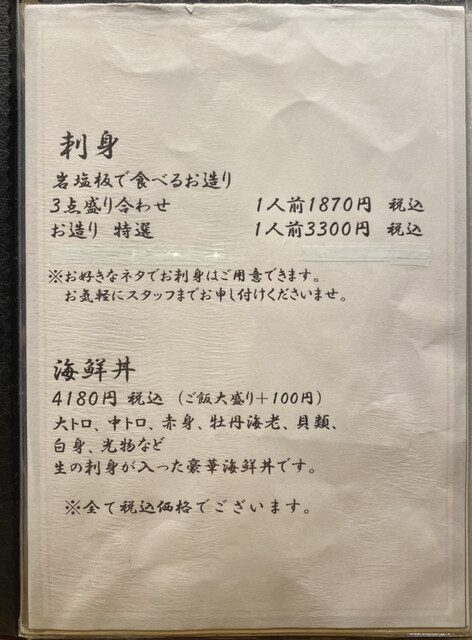 刺身
岩塩板で食べるお造り
3点盛り合わせ 1人前1870円 税込
お造り 特選 1人前3300円 税込
※お好きなネタでお刺身はご用意できます。
お気軽にスタッフまでお申し付けくださいませ。
海鮮丼
4180円 税込 (ご飯大盛り+100円)
大トロ、中トロ、赤身、牡丹海老、貝類、
白身、光物など
生の刺身が入った豪華海鮮丼です。
※全て税込価格でございます。